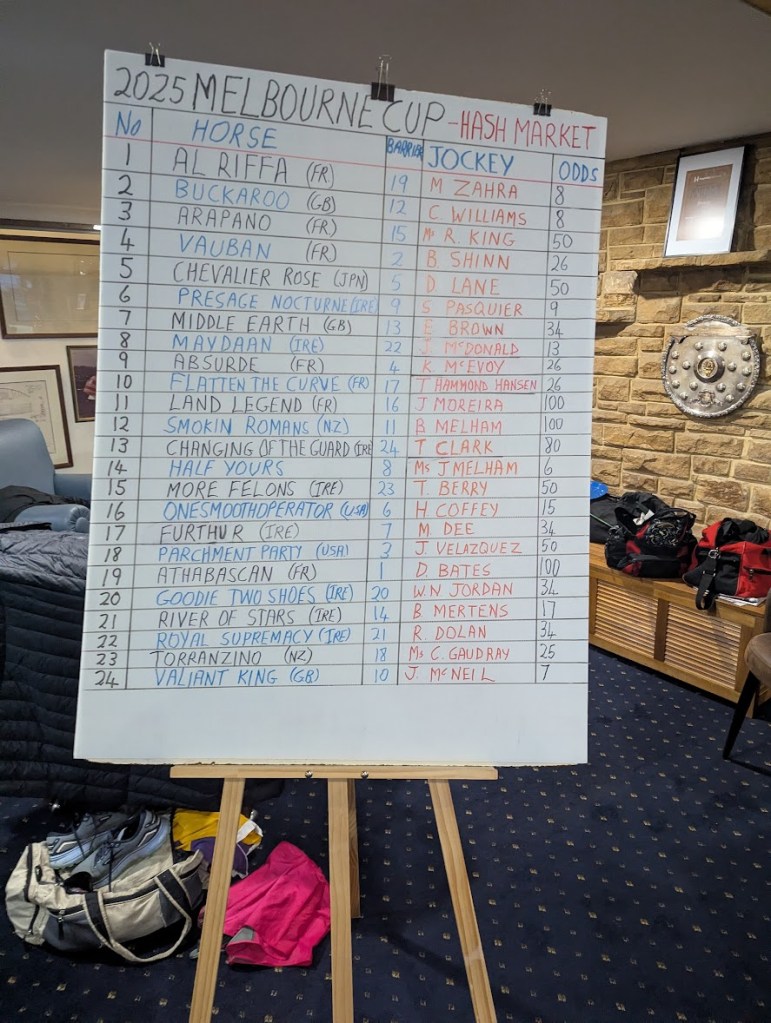 2025 MELBOURNE CUP - HASH MARKET
No HORSE BARRIER JOCKEY ODDS
1 AL RIFFA (FR) 19 M ZAHRA 8
2 BUCKAROO (GB) 12 C. WILLIAMS 8
3 ARAPANO (FR) 15 Ms R. KING 50
4 VAUBAN (FR) 2 B SHINN 26
5 CHEVALIER ROSE (JPN) 5 D. LANE 50
6 PRESAGE NOCTURNE (IRE) 9 S PASQUIER 9
7 MIDDLE EARTH (GB) 13 E BROWN 34
8 MAYDAAN (IRE) 22 J. McDONALD 13
9 ABSURDE (FR) 4 K McEVOY 26
10 FLATTEN THE CURVE (FR) 17 T HAMMOND HANSEN 26
11 LAND LEGEND (FR) 16 J MOREIRA 100
12 SMOKIN ROMANS (NZ) 11 B MELHAM 100
13 CHANGING OF THE GUARD (IRE 24 T CLARK 80
14 HALF YOURS 8 Ms J MELHAM 6
15 MORE FELONS (IRE) 23 T. BERRY 50
16 ONESMOOTHOPERATOR (USA) 6 H COFFEY 15
17 FURTHUR (IRE) 7 M. DEE 34
18 PARCHMENT PARTY (USA) 3 J. VELAZQUEZ 50
19 ATHABASCAN (FR) 1 D. BATES 100
20 GOODIE TWO SHOES (IRE) 20 W.N JORDAN 34
21 RIVER OF STARS (IRE) 14 B MERTENS 17
22 ROYAL SUPREMACY (IRE) 21 R. DOLAN 34
23 TORRANZINO (NZ) 18 Ms C. GAUDRAY 25
24 VALIANT KING (GB) 10 J. McNEIL 7